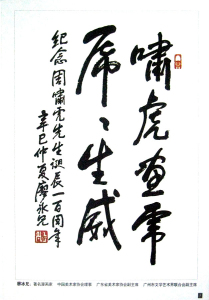 啸虎画虎
虎虎生威
纪念周啸虎先生诞辰一百周年
辛巳仲夏廖冰兄
廖冰兄，著名漫画家 中国美术家协会理事 广东省美术家协会副主席 广州市文学艺术界联合会副主席